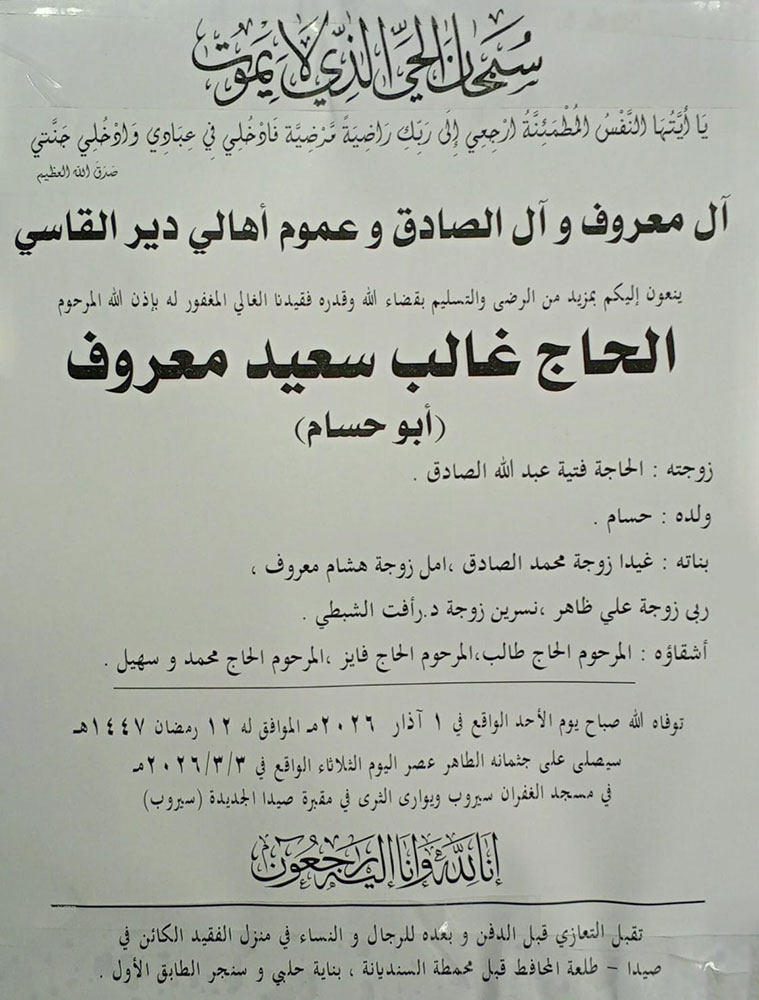 سُبْحَانَ الحَيِّ الَّذِي لَا يَمُوتُ
يَا أَيَّتُهَا النَّفْسُ المُطْمَئِنَّةُ ارْجِعِي إِلَى رَبِّكِ رَاضِيَةً مَّرْضِيَّة فَادْخُلِي فِي عِبَادِي وَادْخُلِي جَنَّتِي
صدق الله العظيم
آل معروف و آل الصادق و عموم أهالي دير القاسي
ينعون إليكم بمزيد من الرضى والتسليم بقضاء الله وقدره فقيدنا الغالي المغفور له بإذن الله المرحوم
الحاج غالب سعيد معروف
(أبو حسام)
زوجته : الحاجة فتية عبد الله الصادق .
ولده : حسام .
بناته : غيدا زوجة محمد الصادق ،امل زوجة هشام معروف ،
ربى زوجة علي ظاهر ،نسرين زوجة د.رأفت الشبطي .
أشقاؤه : المرحوم الحاج طالب،المرحوم الحاج فايز ،المرحوم الحاج محمد و سهيل .
توفاه الله صباح يوم الأحد الواقع في ١ آذار ٢٠٢٦مـ الموافق له ١٢ رمضان ١٤٤٧هـ
سيصلى على جثمانه الطاهر عصر اليوم الثلاثاء الواقع في ٢٠٢٦/٣/٣مـ
في مسجد الغفران سيروب ويوارى الثرى في مقبرة صيدا الجديدة (سيروب)
إنا لله وإنا إليه راجعون
تقبل التعازي قبل الدفن و بعده للرجال و النساء في منزل الفقيد الكائن في
صيدا – طلعة المحافظ قبل محمطة السنديانة ، بناية حلبي و سنجر الطابق الأول .